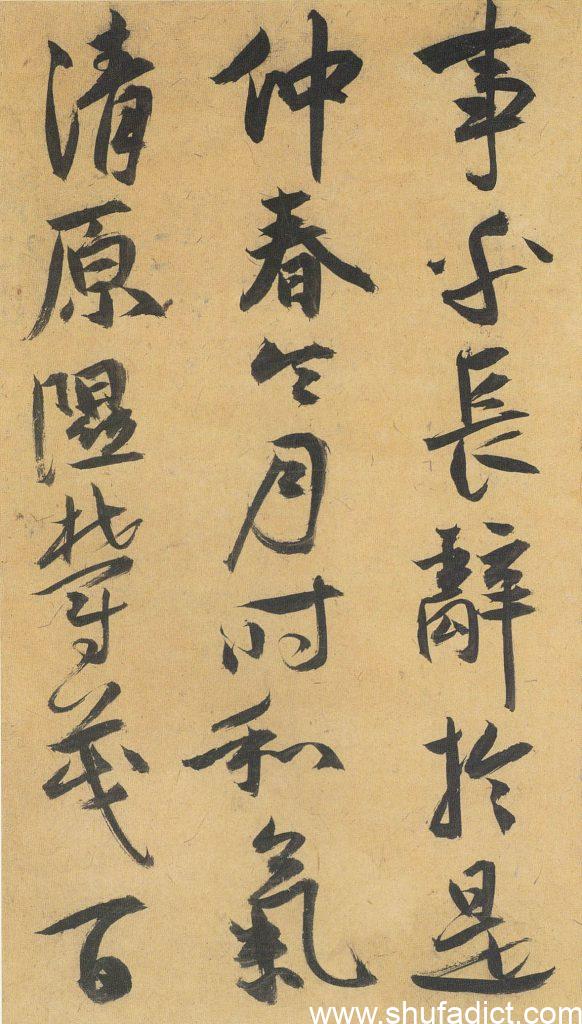 事乎長辭於是
仲春令月時和氣
清原隰鬱茂百
www.shufadict.com